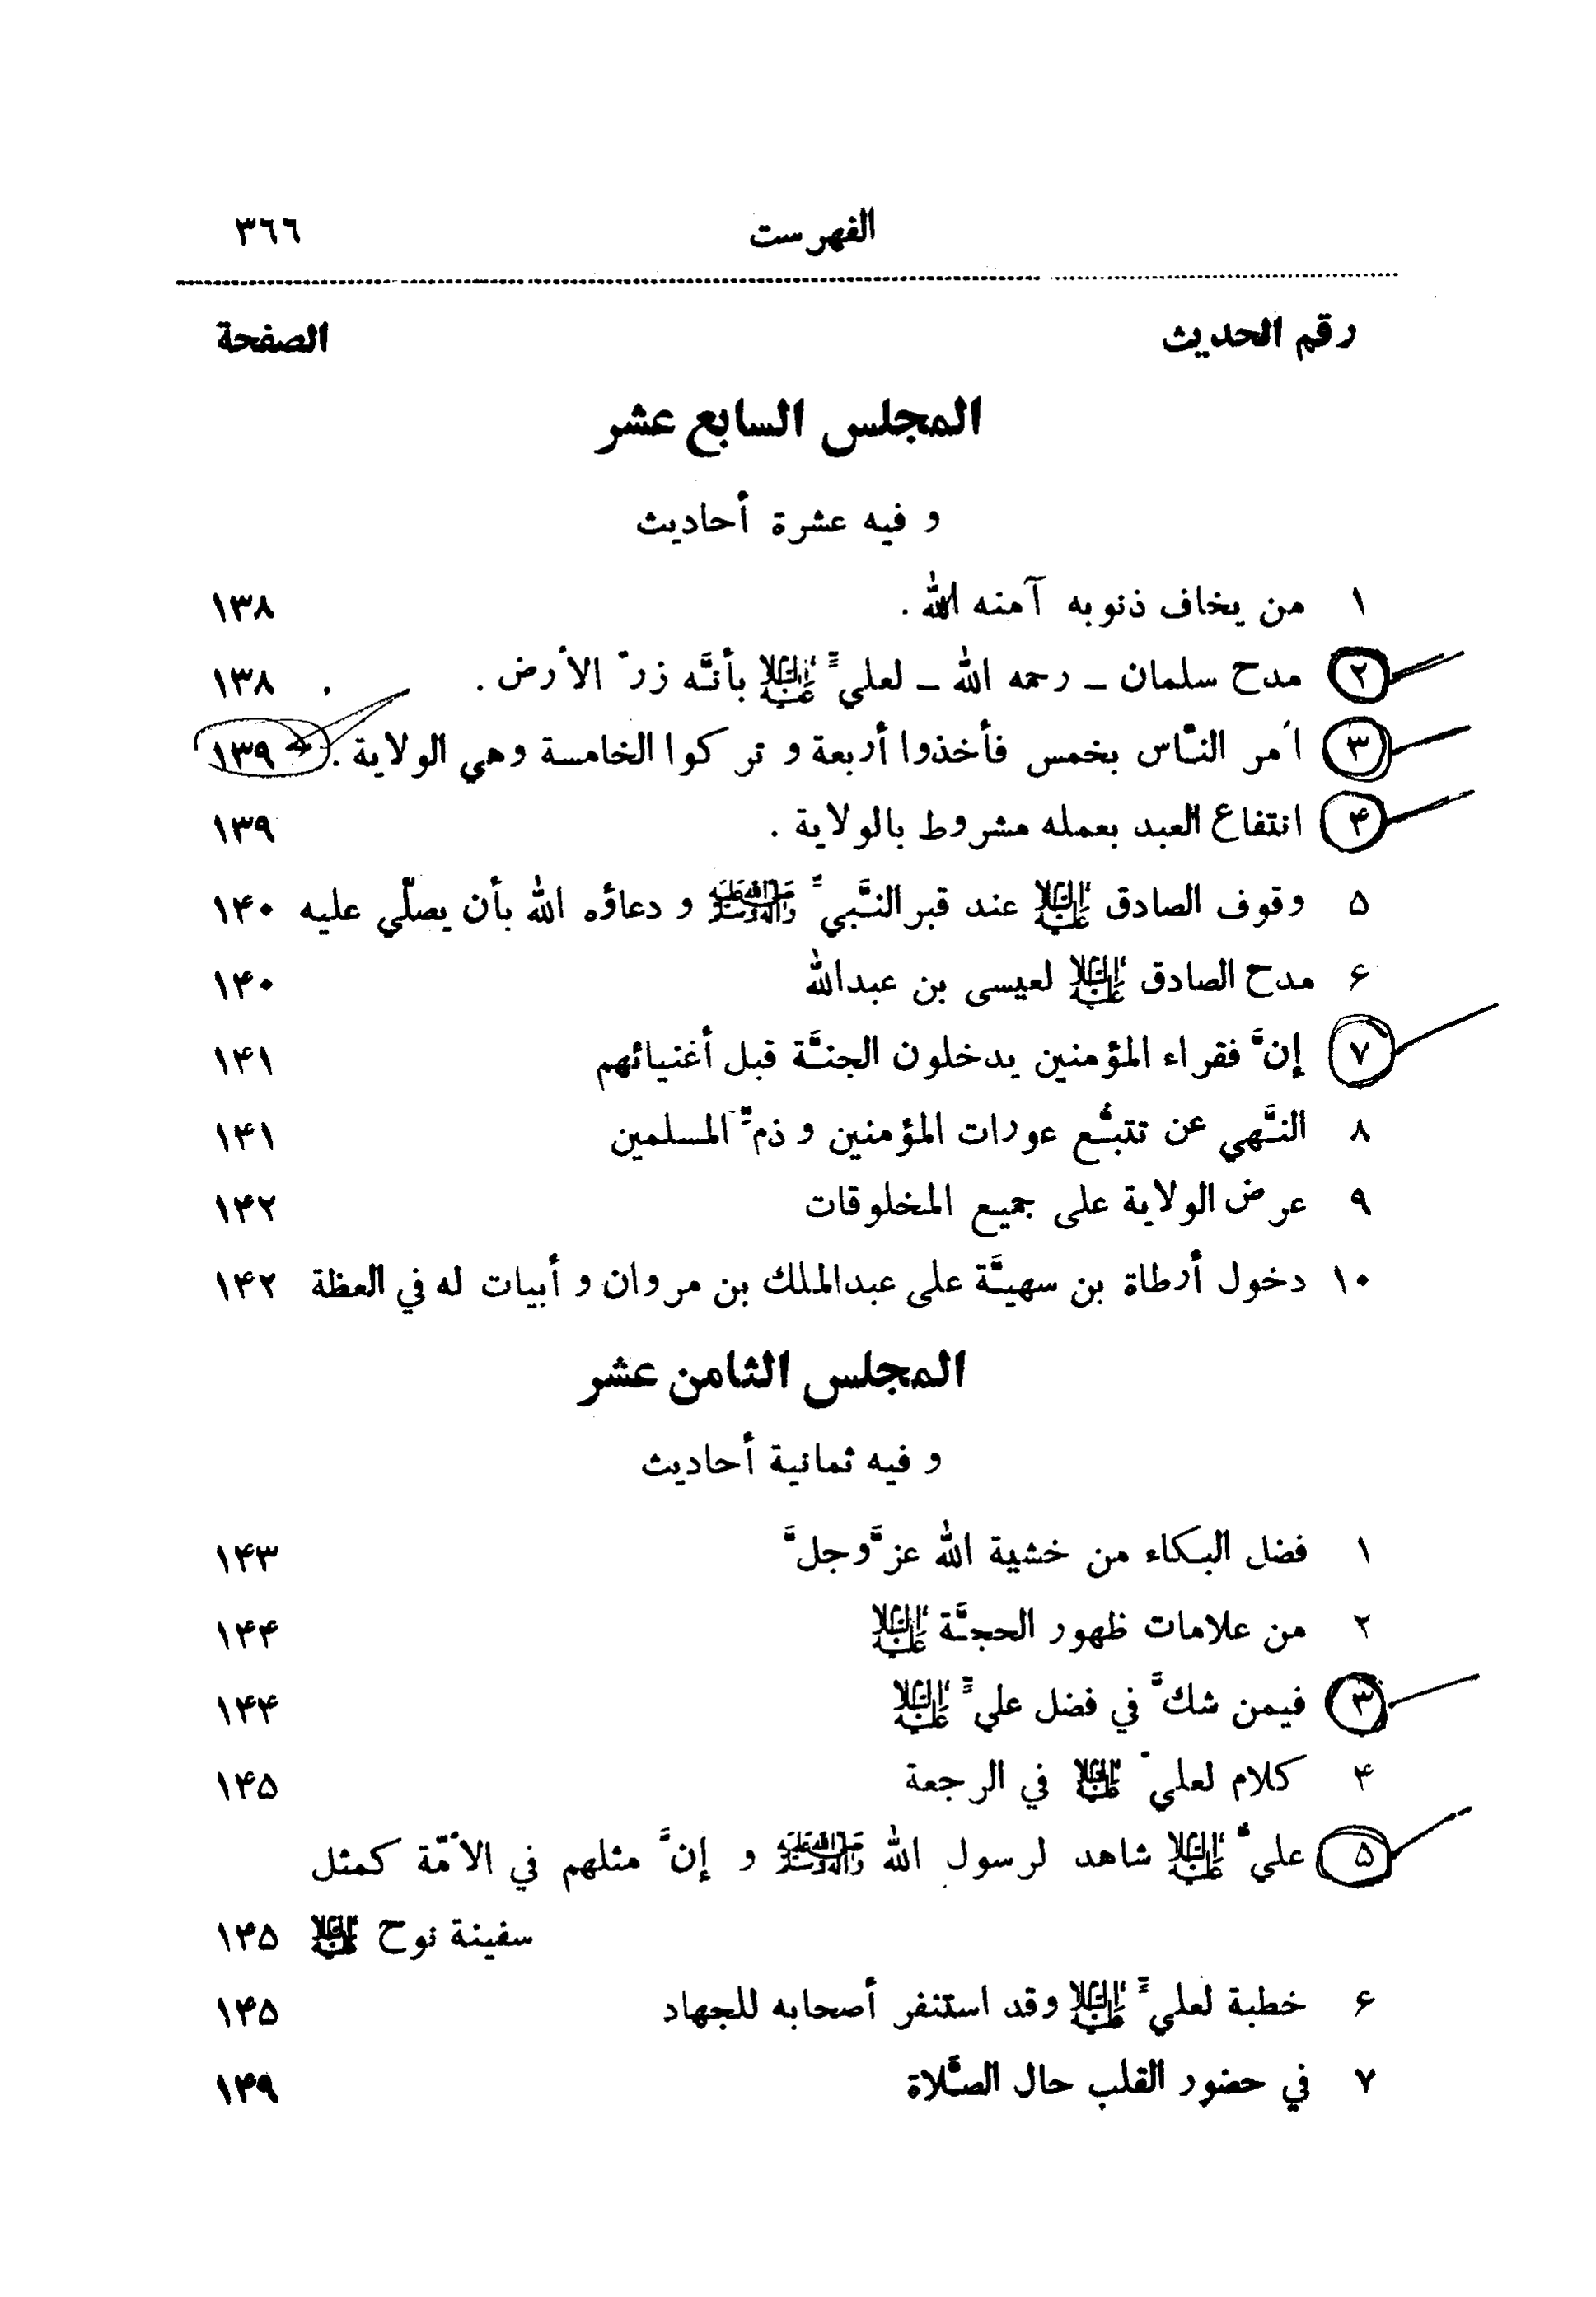 الفهرست ٣٦٦
رقم الحديث الصفحة
المجلس السابع عشر
و فيه عشرة أحاديث
١ من يخاف ذنوبه آمنه الله . ١٣٨
٢ مدح سلمان ـ رحمه الله ـ لعليّ عليه السلام بأنَّه زرّ الأرض . ١٣٨
٣ اُمر النّاس بخمس فأخذوا أربعة و تركوا الخامسة وهي الولاية . ١٣٩
۴ انتفاع العبد بعمله مشروط بالولاية . ١٣٩
۵ وقوف الصادق عليه السلام عند قبر النَّبيّ صلى الله عليه وآله وسلم و دعاؤه الله بأن يصلّي عليه ١۴٠
۶ مدح الصادق عليه السلام لعيسى بن عبدالله ١۴٠
٧ إنَّ فقراء المؤمنين يدخلون الجنَّة قبل أغنيائهم ١۴١
٨ النَّهي عن تتبُّع عورات المؤمنين و ذمِّ المسلمين ١۴١
٩ عرض الولاية على جميع المخلوقات ١۴٢
١٠ دخول أرطاة بن سهيَّة على عبدالملك بن مروان و أبيات له في العظة ١۴٢
المجلس الثامن عشر
و فيه ثمانية أحاديث
١ فضل البكاء من خشية الله عزَّوجلَّ ١۴٣
٢ من علامات ظهور الحجَّة عليه السلام ١۴۴
٣ فيمن شكَّ في فضل عليٍّ عليه السلام ١۴۴
۴ كلام لعليّ عليه السلام في الرجعة ١۴۵
۵ عليٌّ عليه السلام شاهد لرسول الله صلى الله عليه وآله وسلم و إنَّ مثلهم في الأمّة كمثل
سفينة نوح عليه السلام ١۴۵
۶ خطبة لعليٍّ عليه السلام وقد استنفر أصحابه للجهاد ١۴۵
٧ في حضور القلب حال الصَّلاة ١۴٩